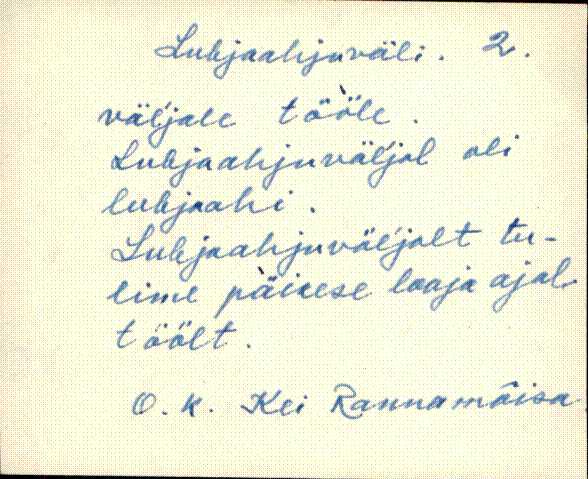 Lubjaahjuväli. 2.
väljale tööle.
Lubjaahjuväljal oli
lubjaahi.
Lubjaahjuväljalt tu-
lime päikese looja ajal
töölt.
O. K. Kei Rannamõisa